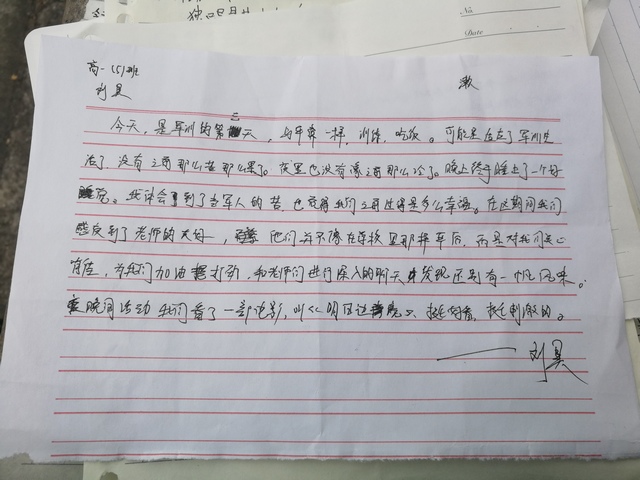 No.
Date
高一(5)班
刘昊
激
今天,是军训的第三天,与平常一样,训练,吃饭。可能是适应了军训生
活了,没有之前那么苦那么累了。夜里也没有像之前那么冷了。晚上终于睡上了一个好
觉。我体会到了当军人的苦,也觉得我们之前过得是多么幸福。在这期间我们
感受到了老师的关好,他们并不像在学校里那样平后,而是对我们关心
有佳,为我们加油打劲,和老师们进行深入的聊天发现还别有一帆风味。
晚间活动我们看了一部电影,叫《明日边缘》,挺好看,挺刺激的。
——刘昊